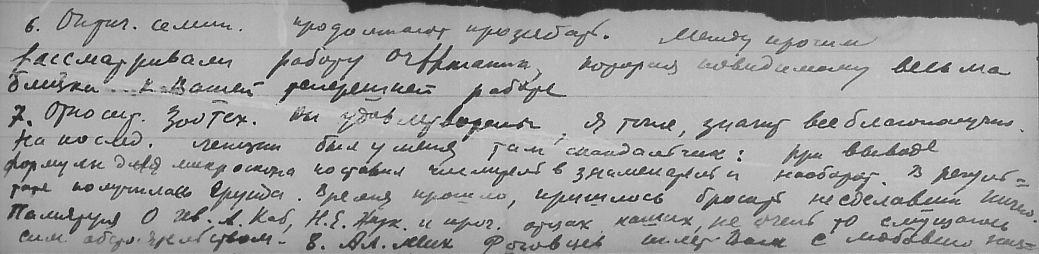 6. Оптич. семин. продолжают прозябать. Между прочим
рассматривали работу Оффманна, которая повидимому весьма
близка к Вашей теперешней работе
7. Относит. Зоотех. Вы удовлетворены, я тоже, значит все благополучно.
На послед. лекции был у меня там скандальчик: при выводе
формулы для микроскопа поставил числитель в знаменатель и наоборот. В резуль=
тате получилась ерунда. Время прошло, пришлось бросить не сделавши ничего.
Памятуя о Ив. А. Каб, Н.Е. Жук. и проч. отцах наших, не очень то смущаюсь
сим обстоятельством. 8. Ал. Мих шлет Вам с любовью